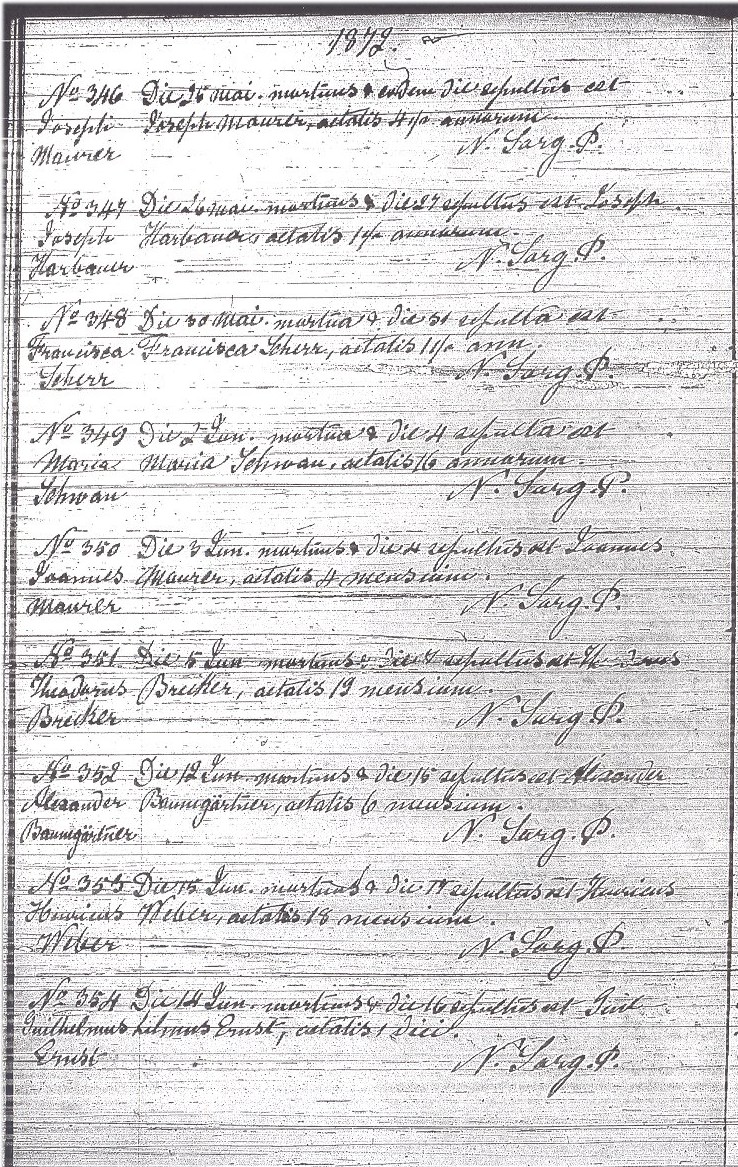 1872.
No 346 Die 25 mai. mortuus & eodem die sepultus est
Joseph Joseph Maurer, aetatis 4½ annorum
Maurer N. Sorg. P.
No 347 Die 26 mai. mortuus & die 27 sepultus est Joseph
Joseph Harbauer, aetatis 1½ annorum
Harbauer N. Sorg. P.
No 348 Die 30 mai. mortua & die 31 sepulta est
Francisca Francisca Scherr, aetatis 1½ ann.
Scherr N. Sorg. P.
No 349 Die 2 Jun. mortua & die 4 sepulta est
Maria Maria Schwan, aetatis 16 annorum.
Schwan N. Sorg. P.
No 350 Die 3 Jun. mortuus & die 4 sepultus est Joannes
Joannes Maurer, aetatis 4 mensium.
Maurer N. Sorg. P.
No 351 Die 5 Jun mortuus & die sepultus est
Theodorus Brecker, aetatis 19 mensium.
Brecker N. Sorg. P.
No 352 Die 12 Jun mortuus & die 15 sepultus est Alexander
Alexander Baumgärtner, aetatis 6 mensium.
Baumgärtner N. Sorg. P.
No 353 Die 15 Jun. mortuus & die 17 sepultus est Henricus
Henricus Weber, aetatis 18 mensium.
Weber N. Sorg. P.
No 354 Die 14 Jun. mortuus & die 16 sepultus est Guil
Guilhelmus helmus Ernst, aetatis 1 diei.
Ernst N. Sorg. P.